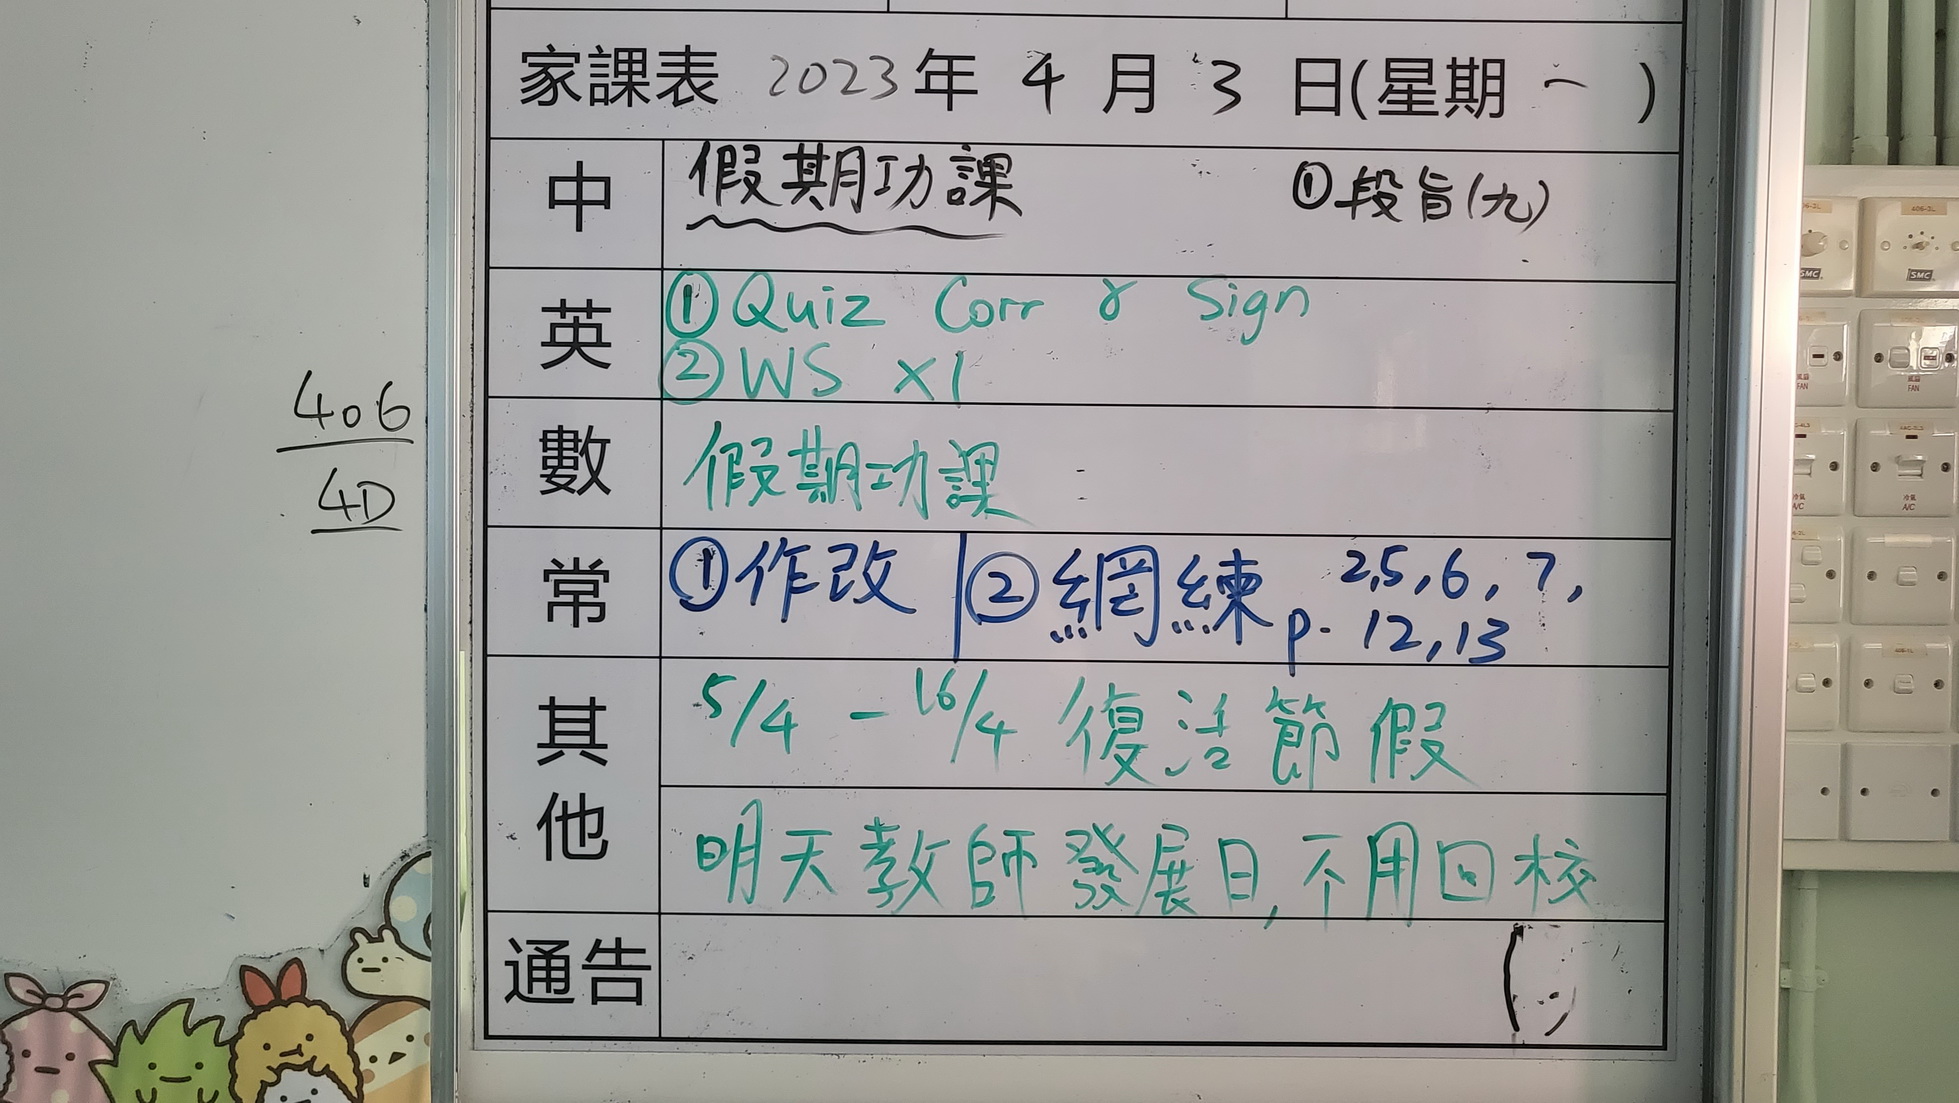 家課表 2023年 4 月 3 日(星期 一 )
中 假期功課 ①段旨(九)
英 ①Quiz Corr & Sign
②WS ×1
數 假期功課
常 ①作改 | ②網練 p. 2,5,6,7,
12,13
其他 5/4 - 16/4 復活節假
明天教師發展日,不用回校
通告
406
4D
SMC
SMC
風扇
FAN
風扇
FAN
冷氣
A/C
冷氣
A/C